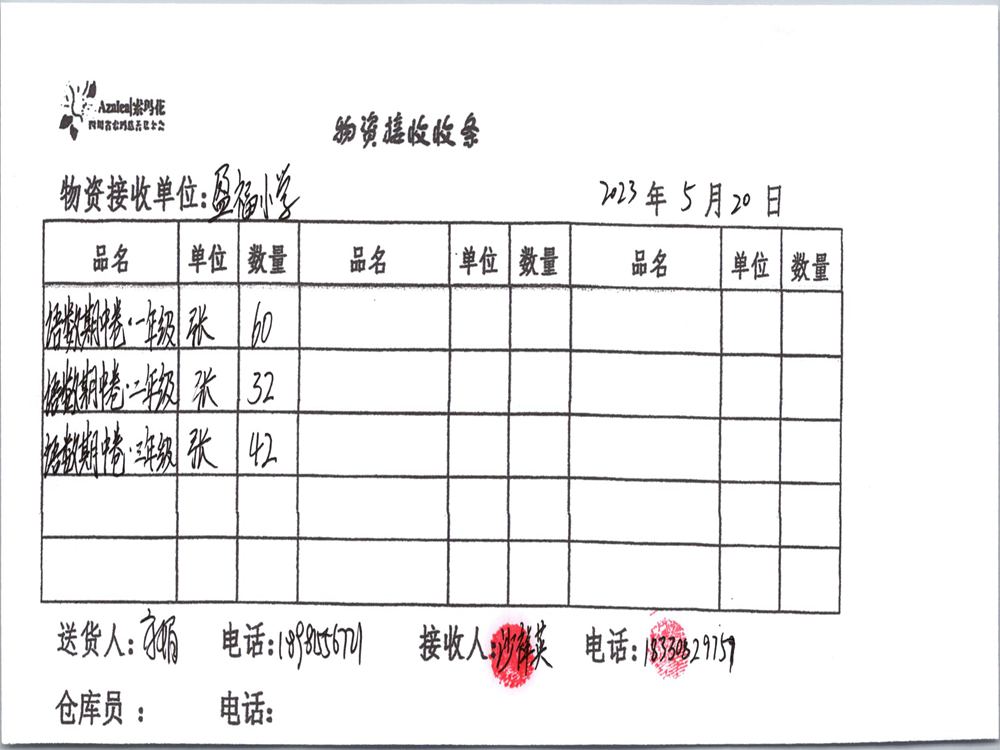 Azalea|索玛花
四川省索玛慈善基金会
物资接收收条
物资接收单位:盈福小学 2023年5月20日
品名 单位 数量 品名 单位 数量 品名 单位 数量
语数期中卷·一年级 张 60
语数期中卷·二年级 张 32
语数期中卷·三年级 张 42
送货人: 电话: 接收人:沙祥英 电话:
仓库员: 电话: